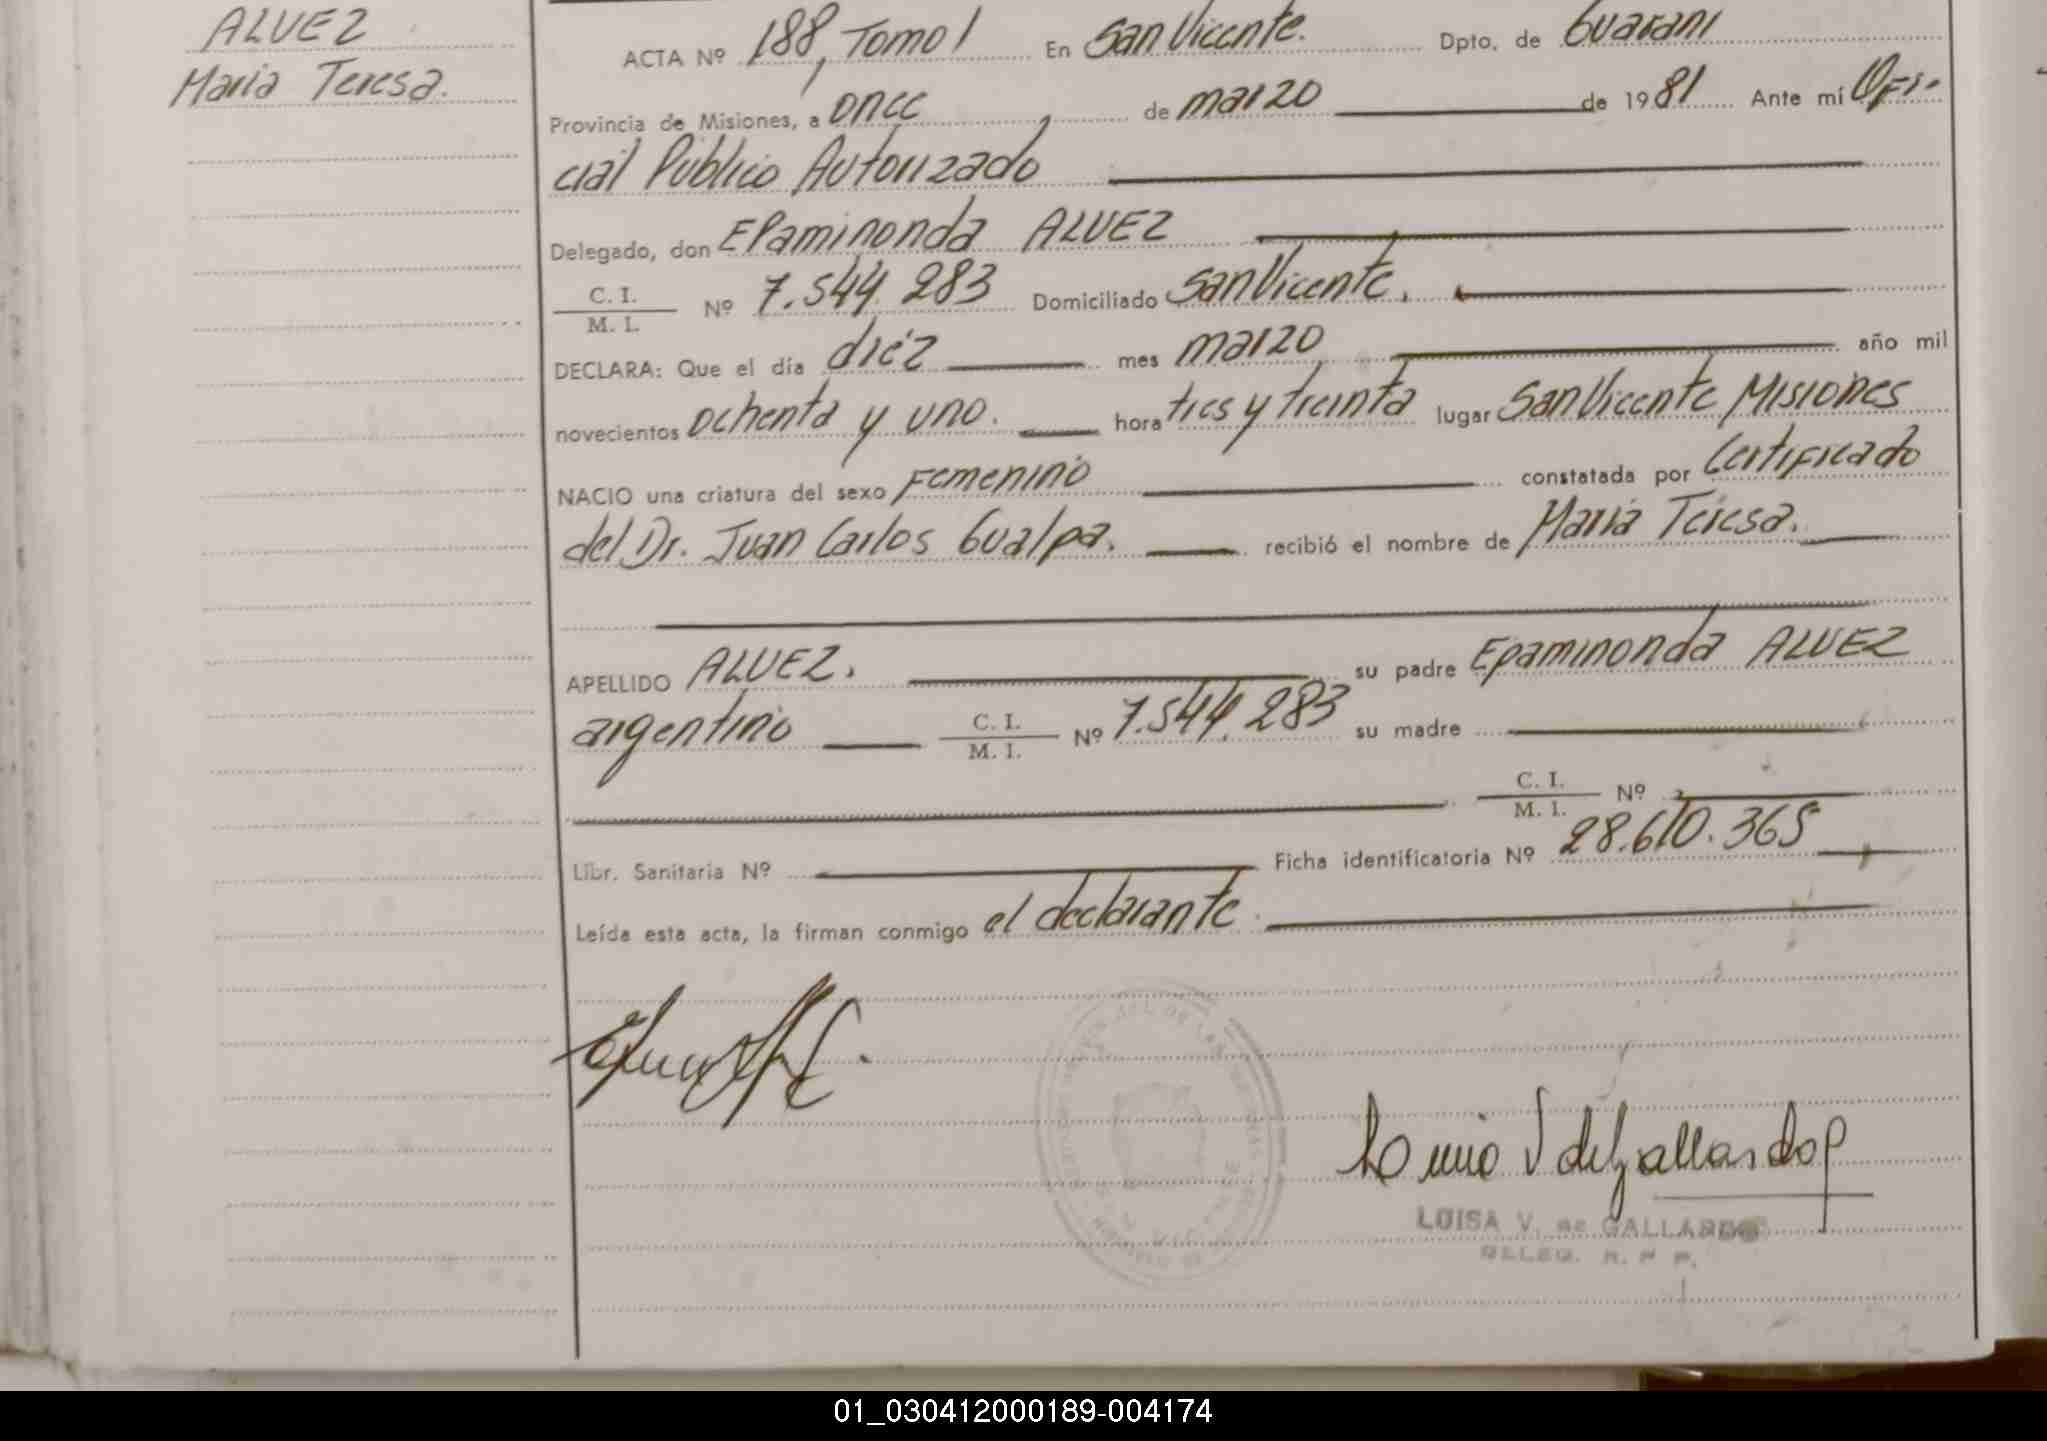 ALVEZ
Maria Teresa.
ACTA Nº 188, Tomo I En San Vicente. Dpto. de Guarani
Provincia de Misiones, a once de marzo de 1981 Ante mí Ofi-
cial Público Autorizado
Delegado, don Epaminonda ALVEZ
C. I. / M. I. Nº 7.544.283 Domiciliado San Vicente.
DECLARA: Que el día diéz mes marzo año mil
novecientos ochenta y uno. hora tres y treinta lugar San Vicente Misiones
NACIO una criatura del sexo Femenino constatada por Certificado
del Dr. Juan Carlos Gualpa. recibió el nombre de Maria Teresa.
APELLIDO ALVEZ. su padre Epaminonda ALVEZ
argentino C. I. / M. I. Nº 7.544.283 su madre
C. I. / M. I. Nº
Libr. Sanitaria Nº Ficha identificatoria Nº 28.610.365
Leída esta acta, la firman conmigo el declarante.
LUISA V. de GALLARDO
01_030412000189-004174